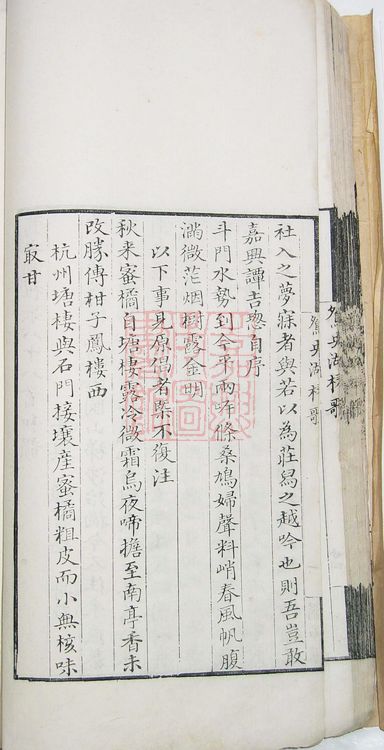 鴛央湖櫂歌
社入之夢寐者與若以為莊舄之越吟也則吾豈敢
嘉興譚吉璁自序
斗門水勢到今平兩岸條桑鳩婦聲料峭春風帆腹
滿微茫烟樹露金明
以下事見原倡者槩不復注
秋来蜜橘自塘棲露冷微霜烏夜啼擔至南亭香未
改勝傳柑子鳳樓西
杭州塘棲與石門接壤産蜜橘粗皮而小無核味
冣甘